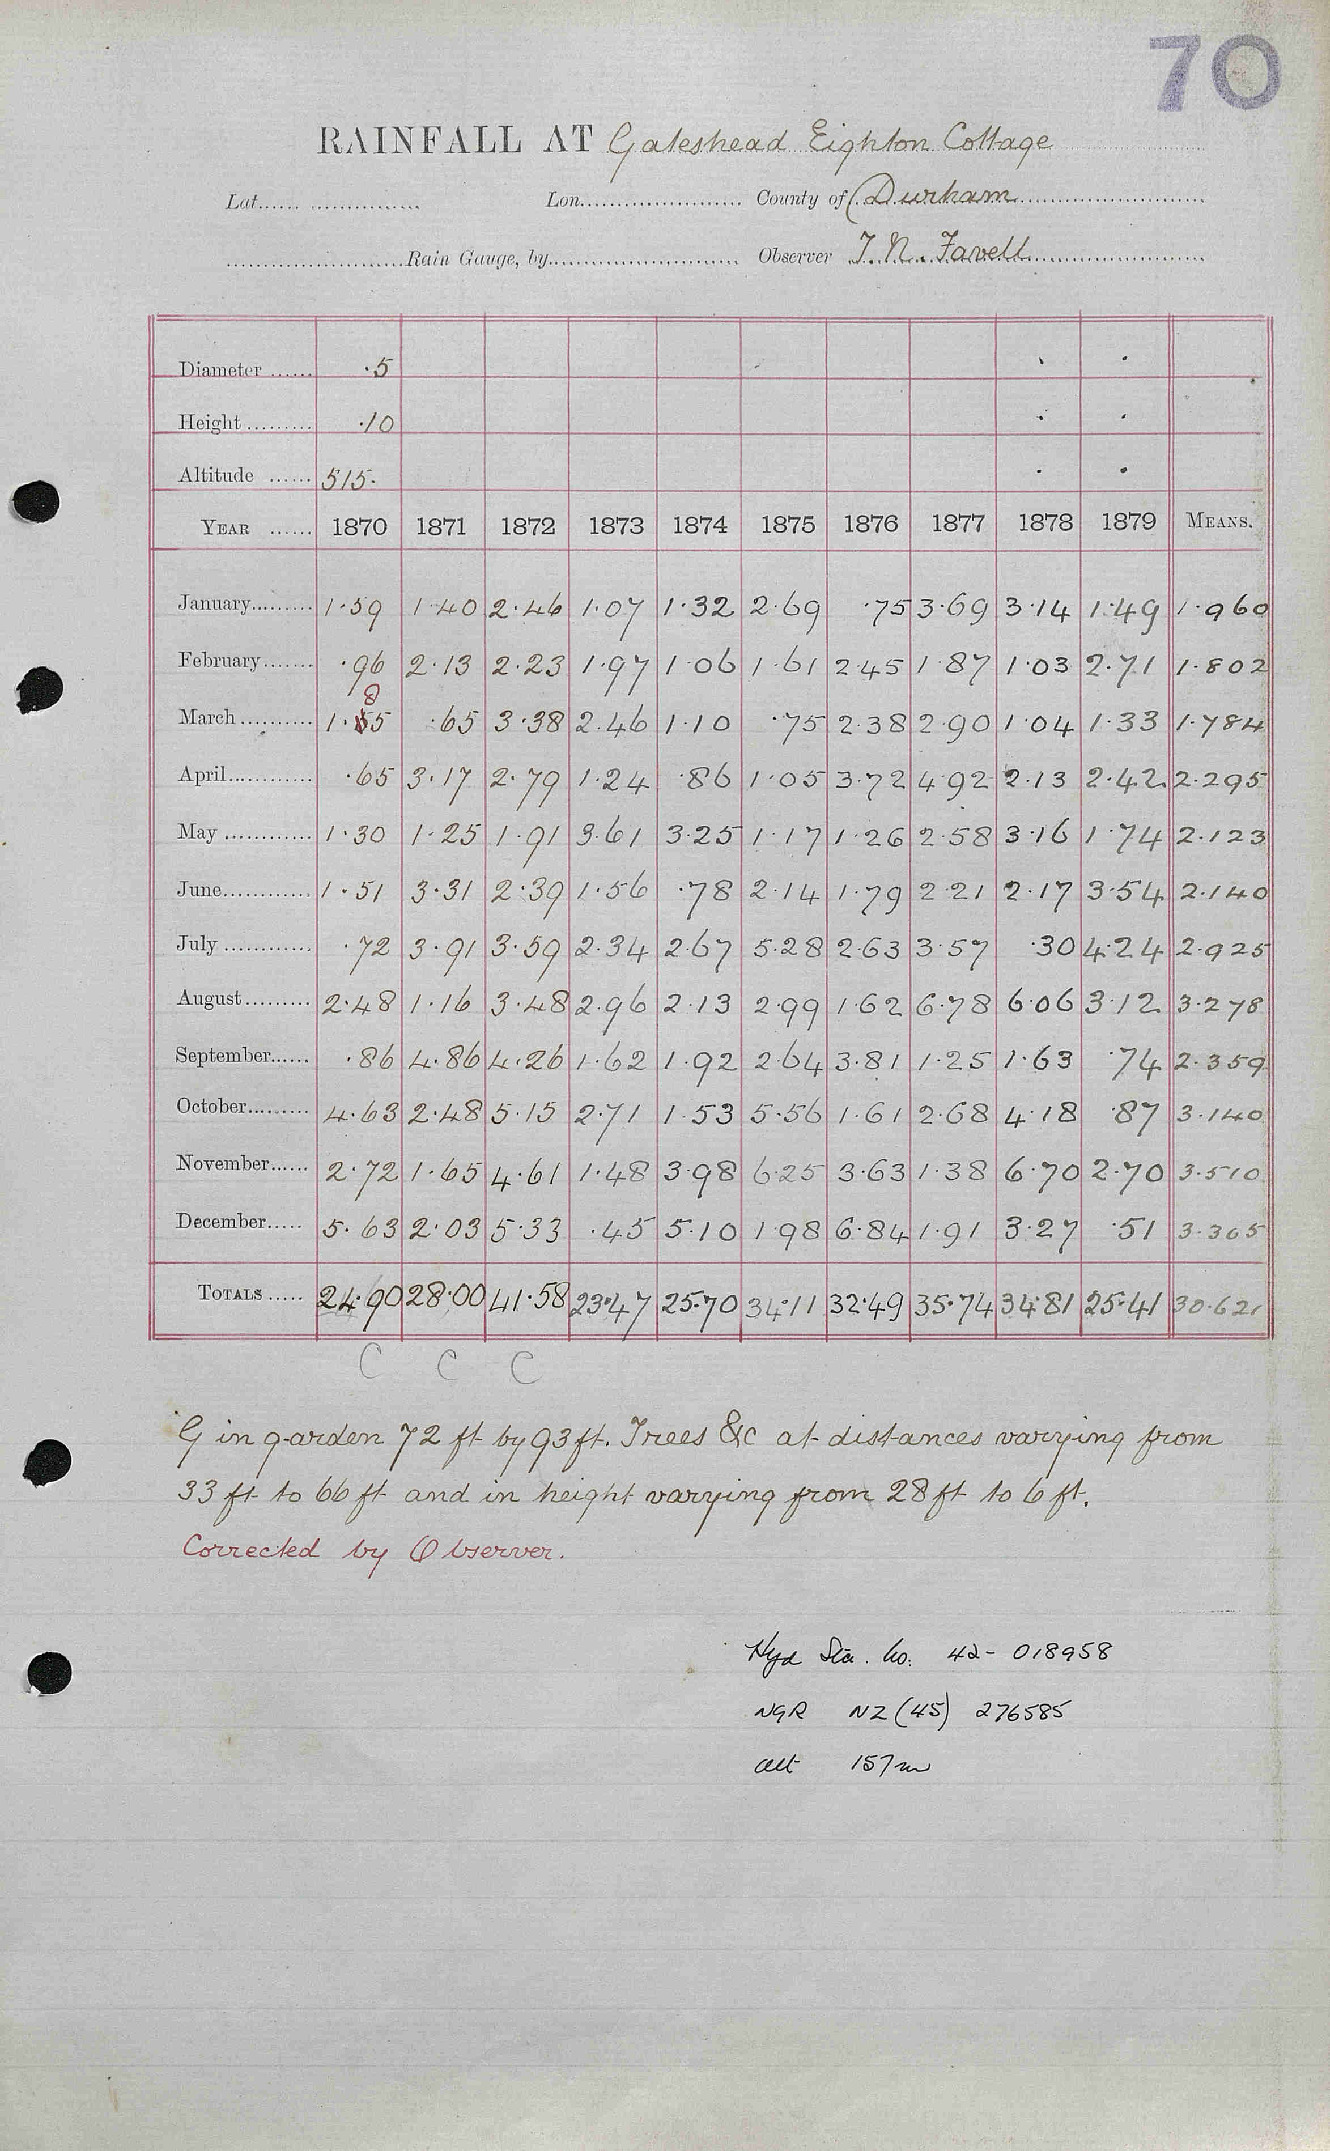 70
RAINFALL AT Gateshead Eighton Cottage
Lat. Lon. County of Durham
Rain Gauge, by Observer T. N. Favell
Diameter ·5
Height ·10
Altitude 515·
YEAR 1870 1871 1872 1873 1874 1875 1876 1877 1878 1879 MEANS.
January 1·59 1·40 2·46 1·07 1·32 2·69 ·75 3·69 3·14 1·49 1·960
February ·96 2·13 2·23 1·97 1·06 1·61 2·45 1·87 1·03 2·71 1·802
8
March 1·55 ·65 3·38 2·46 1·10 ·75 2·38 2·90 1·04 1·33 1·784
April ·65 3·17 2·79 1·24 ·86 1·05 3·72 4·92 2·13 2·42 2·295
May 1·30 1·25 1·91 3·61 3·25 1·17 1·26 2·58 3·16 1·74 2·123
June 1·51 3·31 2·39 1·56 ·78 2·14 1·79 2·21 2·17 3·54 2·140
July ·72 3·91 3·59 2·34 2·67 5·28 2·63 3·57 ·30 4·24 2·925
August 2·48 1·16 3·48 2·96 2·13 2·99 1·62 6·78 6·06 3·12 3·278
September ·86 4·86 4·26 1·62 1·92 2·64 3·81 1·25 1·63 ·74 2·359
October 4·63 2·48 5·15 2·71 1·53 5·56 1·61 2·68 4·18 ·87 3·140
November 2·72 1·65 4·61 1·48 3·98 6·25 3·63 1·38 6·70 2·70 3·510
December 5·63 2·03 5·33 ·45 5·10 1·98 6·84 1·91 3·27 ·51 3·305
TOTALS 24·90 28·00 41·58 23·47 25·70 34·11 32·49 35·74 34·81 25·41 30·621
C C C
G in garden 72 ft by 93 ft. Trees &c at distances varying from
33 ft to 66 ft and in height varying from 28 ft to 6 ft.
Corrected by Observer.
Hyd Sta. No. 42- 018958
NGR NZ (45) 276585
alt 157m